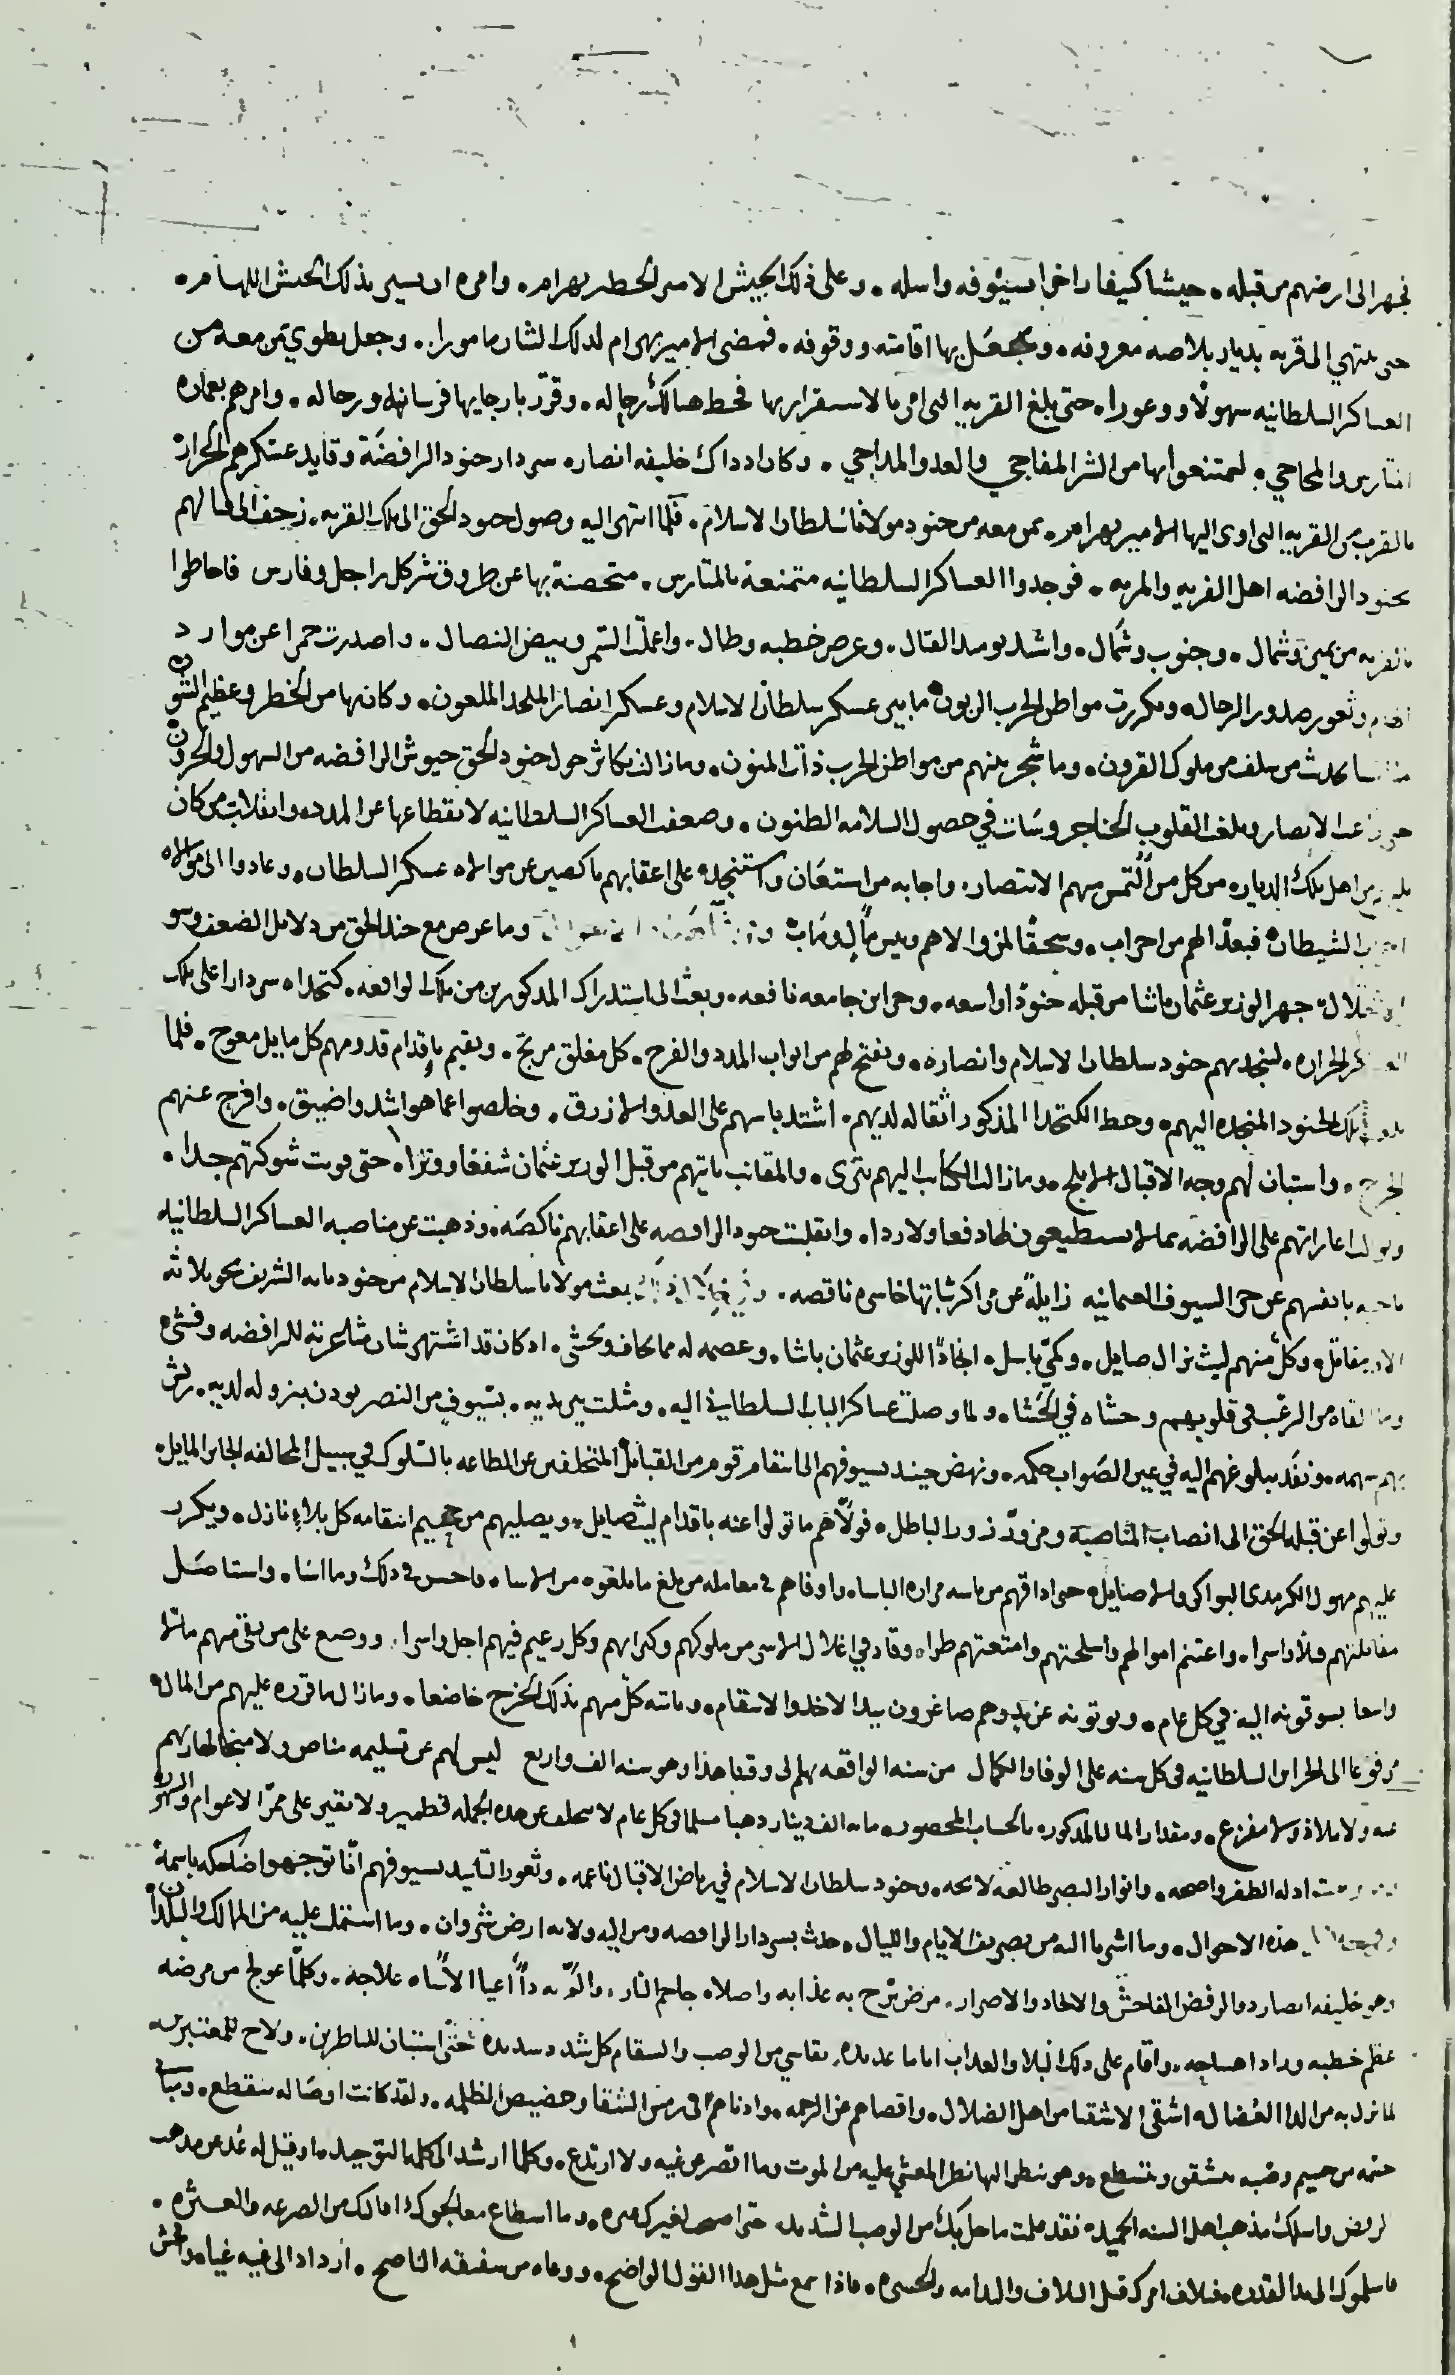 فجهز الى ارضهم من قبله ۰ جيشا كثيفا زاخرا بسيوفه واسله ۰ وعلى ذلك الجيش الامير الخطير بهرام ۰ وامره ان يسير بذلك الجيش اللهام ۰
حتى ينتهي الى قريه بديار بلاصه معروفه ۰ ويجعل بها اقامته ووقوفه ۰ فمضى الامير بهرام لذلك الشان مامورا ۰ وجعل يطوي بمن معه من
العساكر السلطانيه سهولا ووعورا ۰ حتى بلغ القريه التي امر بالاستقرار بها فحط هنالك رحاله ۰ وقرر بارجايها فرسانه ورجاله ۰ وامرهم بعماره
المتارس والمحاجي ۰ ليمتنعوا بها من الشر المفاجي والعدو المداجي ۰ وكان اذ ذاك خليفه انصاره سردار جنود الرافضة وقايد عسكرهم الجراره
بالقرب من القريه التي اوى اليها الامير بهرام ۰ بمن معه من جنود مولانا سلطان الاسلام ۰ فلما انتهى اليه وصول جنود الحق الى تلك القريه ۰ زحف الى قتالهم
بجنود الرافضه اهل الفريه والمريه ۰ فوجدوا العساكر السلطانيه متمنعة بالمتارس ۰ متحصنة بها عن طروق شر كل راجل وفارس فاحاطوا
بالقريه من يمين وشمال ۰ وجنوب وشمال ۰ واشتد يوميذ القتال ۰ وعرض خطبه وطال ۰ واعملت السمر وبيض النصال ۰ واصدرت حمرا عن موارد
وثغور صدور الرجال ۰ وتكررت مواطن الحرب الزبون ما بين عسكر سلطان الاسلام وعسكر انصار الملحد الملعون ۰ وكان بها من الخطر وعظيم الشؤن
من سلف من ملوك القرون ۰ وما شجر بينهم من مواطن الحرب ذات المنون ۰ وما زالت تكاثر حول جنود الحق جيوش الرافضه من السهول والحزون
الابصار وبلغت القلوب الحناجر وسات في حصول السلامه الظنون ۰ وضعفت العساكر السلطانيه لانقطاعها عن المدد ۰ وانقلاب من كان
من اهل تلك الديار ۰ من كل من التمس منهم الانتصار ۰ واجابه من استعان واستنجده على اعقابهم ناكصين عن موالاه عسكر السلطان ۰ وعادوا الى موالاه
الشيطان ۰ فبعدا لهم من احزاب ۰ وسحقا لمن والاهم وبيس مآل ومآب وما عرض مع جند الحق من دلايل الضعف وسو
جهز الوزير عثمان باشا من قبله جنودا واسعه ۰ وخزاين جامعه نافعه ۰ وبعث الى استدراك المذكورين من تلك الواقعه ۰ كتخداه سردارا على تلك
الجراره ۰ لينجد بهم جنود سلطان الاسلام وانصاره ۰ وتفتح لهم من ابواب المدد والفرج ۰ كل مغلق مرتج ۰ ويقيم باقدام قدومهم كل مايل معوج ۰ فلما
تلك الجنود المنجده اليهم ۰ وحط الكتخدا المذكور اثقاله لديهم ۰ اشتد باسهم على العدو الازرق ۰ وخلصوا عما هو اشد واضيق ۰ وافرج عنهم
الحرج ۰ واستبان لهم وجه الاقبال الابلج ۰ وما زالت الكتايب اليهم تترى ۰ والمقانب ياتيهم من قبل الوزير عثمان شفعا ووترا ۰ حتى قويت شوكتهم جدا ۰
غاراتهم على الرافضه بما لا يستطيعون لها دفعا ولا ردا ۰ وانقلبت جنود الرافضه على اعقابهم ناكصه ۰ وذهبت عن مناصبه العساكر السلطانيه
بانفسهم عن حر السيوف العثمانيه زايلة عن مراكز ثباتها خاسره ناقصه ۰ بعث مولانا سلطان الاسلام من جنود بابه الشريف نحو ثلاثه
الاف مقاتل ۰ وكل منهم ليث نزال صايل ۰ وكمي باسل ۰ انجادا للوزير عثمان باشا ۰ وعصمه له مما يخاف ويخشى ۰ اذ كان قد اشتهر شان مناجزته للرافضه وفشى
وما القاه من الرعب في قلوبهم وحشاه في الحشا ۰ ولما وصلت عساكر الباب السلطانيه اليه ۰ ومثلت بين يديه ۰ بسيوف من النصر يوذن بنزوله لديه ۰
سهمه ۰ ونفذ ببلوغهم اليه في عين الصواب حكمه ۰ ونهض حينيذ بسيوفهم الى انتقام قوم من القبايل المتخلفين عن الطاعه بالسلوك في سبيل المخالفه الجاير المايل ۰
وتولوا عن قبله الحق الى انصاب المناصبة ومزود زور الباطل ۰ فولاهم ما تولوا عنه باقدام ليث صايل ۰ ويصليهم من جحيم انتقامه كل بلاء نازل ۰ ويكرر
عليهم مهول الكر حتى اذاقهم من باسه مراره الباسا ۰ واوفاهم في معامله من بلغ ما بلغوه من الاسا ۰ فاحسن في ذلك وما اسا ۰ واستاصل
مقاتلتهم قتلا واسرا ۰ واغتنم اموالهم واسلحتهم وامتعتهم طرا ۰ وقاد في اغلال الاسر من ملوكهم وكبرايهم وكل زعيم فيهم اجل واسرا ۰ ووضع على من بقي منهم مالا
واسعا يسوقونه اليه في كل عام ۰ ويوتونه عن يد وهم صاغرون بيد الاخذ والانتقام ۰ وباته كل منهم بذلك الخرج خاضعا ۰ وما زال ما قرره عليهم من المال ۰
مرفوعا الى الخزاين السلطانيه في كل سنه على الوفا والكمال من سنه الواقعه بهلم الى وقتنا هذا وهو سنه الف واربع ليس لهم عن تسليمه مناص ولا منجا
عنه ولا ملاذ ولا مفزع ۰ ومقدار المال المذكور بالحساب المحصور ۰ مايه الف دينار ذهبا مسلما في كل عام لا يتخلف عن هذه الجمله قطمير ولا يتغير على ممر الاعوام والشهور
ادله الظفر واضحه ۰ وانوار النصر طالعه لايحه ۰ وجنود سلطان الاسلام في رياض الاقبال ناعمه ۰ وثغور التاييد بسيوفهم انّا توجهوا ضاحكه باسمة
هذه الاحوال ۰ وما اشرنا اليه من تصريف الايام والليال ۰ حدث بسردار الرافضه ومن اليه ولايه ارض شروان ۰ وما اشتملت عليه من الممالك والبلدان
وهو خليفه انصار ذو الرفض الفاحش والالحاد والاصرار ۰ مرض برّح به عذابه واصلاه جاحم النار ۰ والمّ به داّ اعيا الاساه علاجه ۰ وكلما عولج من مرضه
عظم خطبه وزاد اهتياجه ۰ واقام على ذلك البلا والعذاب اياما عديده ۰ يقاسي من الوصب والسقام كل شده شديده حتى استبان للناظرين ۰ ولاح للمعتبرين
لما نزل به من الدا العضال انه اشقى الاشقيا من اهل الضلال ۰ واقصاهم من الرحمه ۰ وادناهم الى درك الشقا وحضيض الظلمه ۰ ولقد كانت اوصاله تتقطع ۰
وهو ينظر اليها نظر المغشي عليه من الموت وما اقصر عن غيه ولا ارتدع ۰ وكلما ارشد الى كلمه التوحيد ۰ او قيل له عد عن مذهب
الرفض واسلك مذهب اهل السنه الحميده ۰ فقد علمت ما حل بك من الوصب الشديد حتى اصبحت لغيرك عبره ۰ وما استطاع معالجوك اقالتك من الصرعه والعثره ۰
امرك قبل التلاف والندامه والحسره ۰ فاذا سمع مثل هذا القول الواضح ۰ ووعاه من شفيقه الناصح ۰ ازداد الى غيه غيا ۰ وافحش